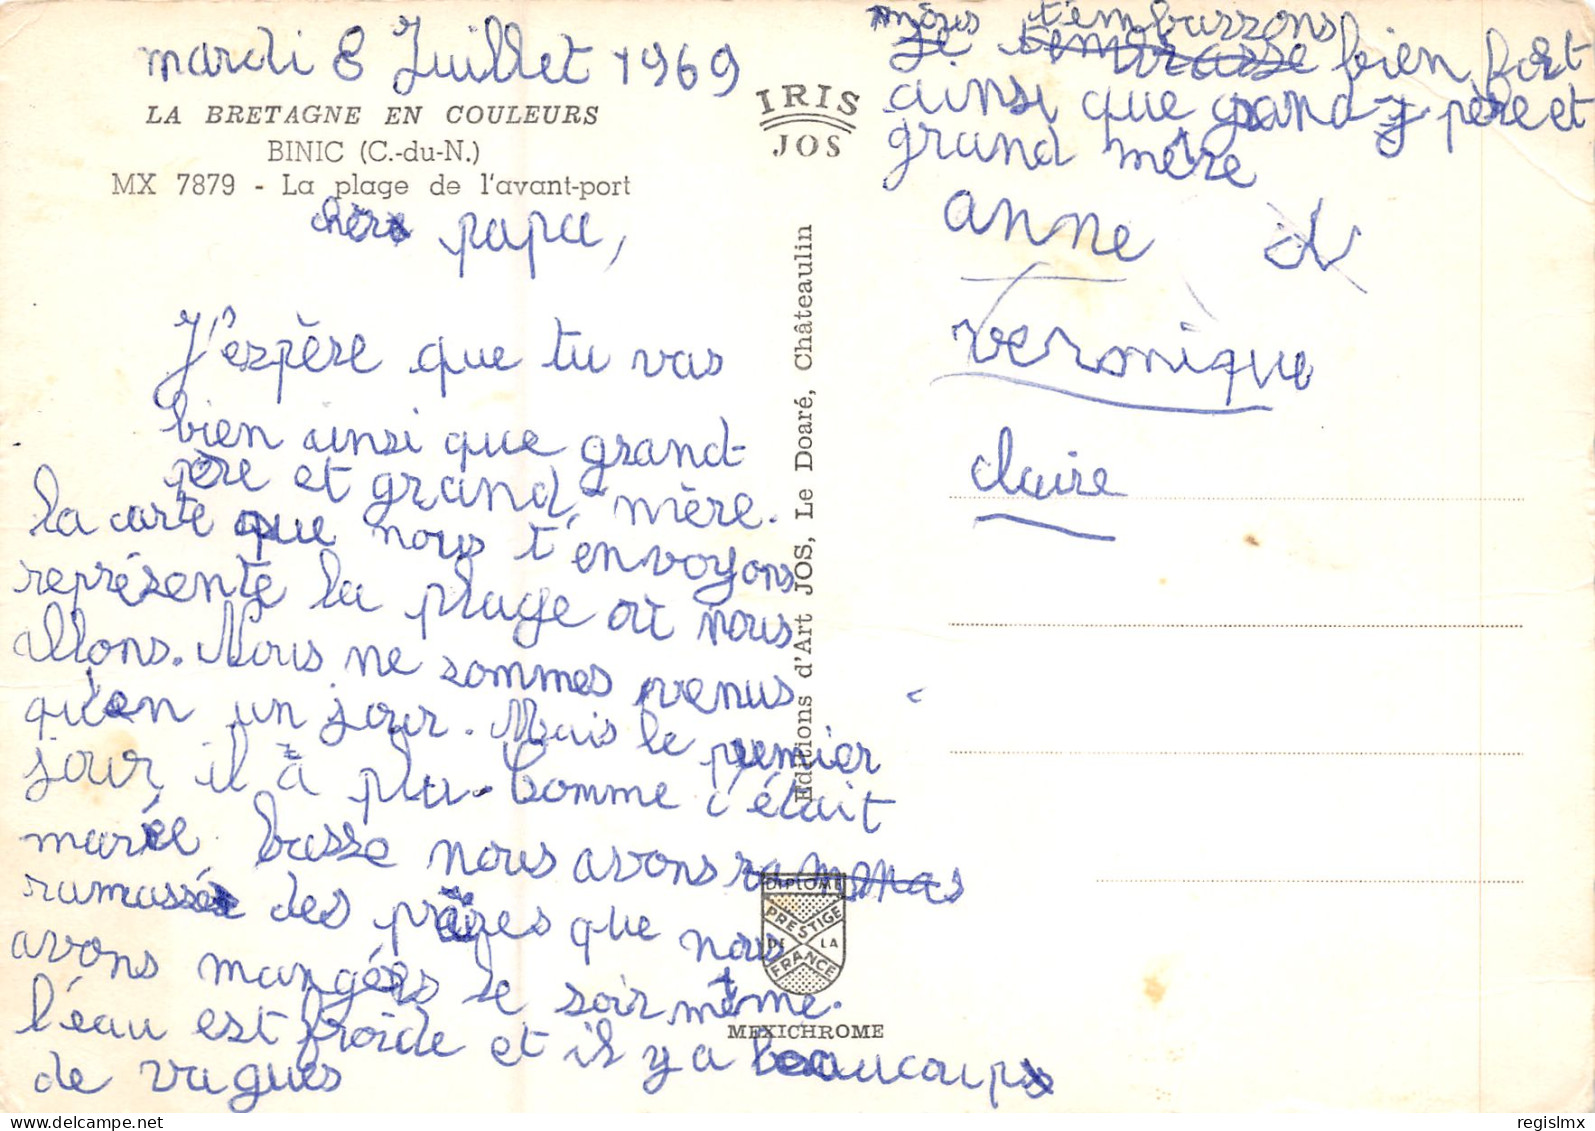 mardi 8 Juillet 1969
LA BRETAGNE EN COULEURS
BINIC (C.-du-N.)
MX 7879 - La plage de l'avant-port
chèr papa,
J'espère que tu vas
bien ainsi que grand-
père et grand-mère.
la carte que nous t'envoyons
représente la plage où nous
allons. Nous ne sommes venus
qu'en un jour. Mais le premier
jour, il à plu. Comme c'était
marée basse nous avons ramas
ramassé des praires que nous
avons mangées le soir même.
l'eau est froide et il y a beaucoup
de vagues
IRIS
JOS
Editions d'Art JOS, Le Doaré, Châteaulin
DIPLOME
PRESTIGE
DE LA
FRANCE
MEXICHROME
nous t'embrassons
je t'embrasse bien fort
ainsi que grand-père et
grand mère
anne
veronique
claire
regislmx